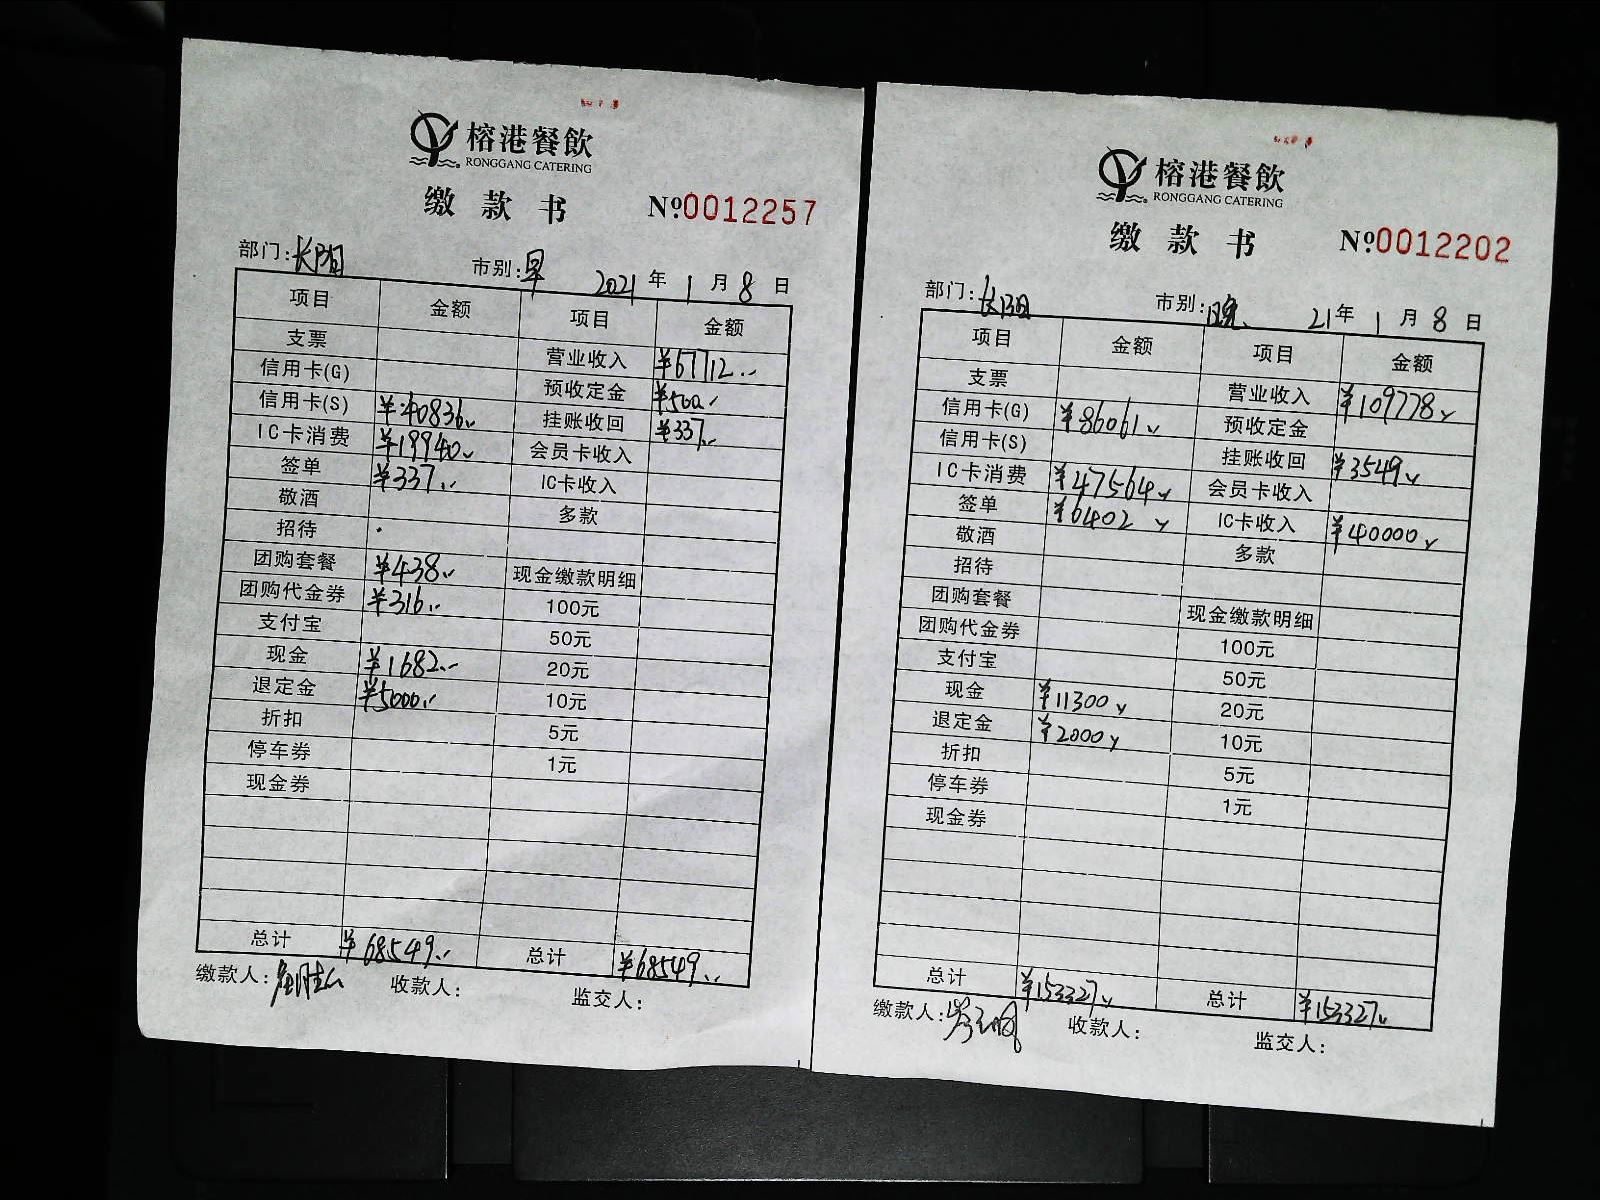 榕港餐飲
RONGGANG CATERING
缴款书 №0012257
部门:长阳 市别:早 2021年1月8日
项目 金额 项目 金额
支票 营业收入 ¥67712.--
信用卡(G) 预收定金 ¥500.-
信用卡(S) ¥40836.- 挂账收回 ¥337.-
IC卡消费 ¥19940.- 会员卡收入
签单 ¥337.-- IC卡收入
敬酒 多款
招待
团购套餐 ¥438.- 现金缴款明细
团购代金券 ¥316.-- 100元
支付宝 50元
现金 ¥1682.-- 20元
退定金 ¥5000.-- 10元
折扣 5元
停车券 1元
现金券
总计 ¥68549.-- 总计 ¥68549.--
缴款人: 收款人: 监交人:
榕港餐飲
RONGGANG CATERING
缴款书 №0012202
部门:长阳 市别:晚 21年1月8日
项目 金额 项目 金额
支票 营业收入 ¥109778.-
信用卡(G) ¥86061.- 预收定金
信用卡(S) 挂账收回 ¥3549.-
IC卡消费 ¥47564.- 会员卡收入
签单 ¥6402.- IC卡收入 ¥40000.-
敬酒 多款
招待
团购套餐 现金缴款明细
团购代金券 100元
支付宝 50元
现金 ¥11300.- 20元
退定金 ¥2000.- 10元
折扣 5元
停车券 1元
现金券
总计 ¥153327.- 总计 ¥153327.-
缴款人: 收款人: 监交人: